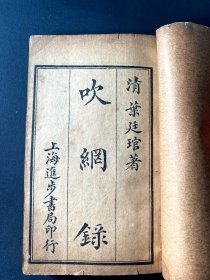 清 葉廷琯著
吹網錄
上海進步書局印行